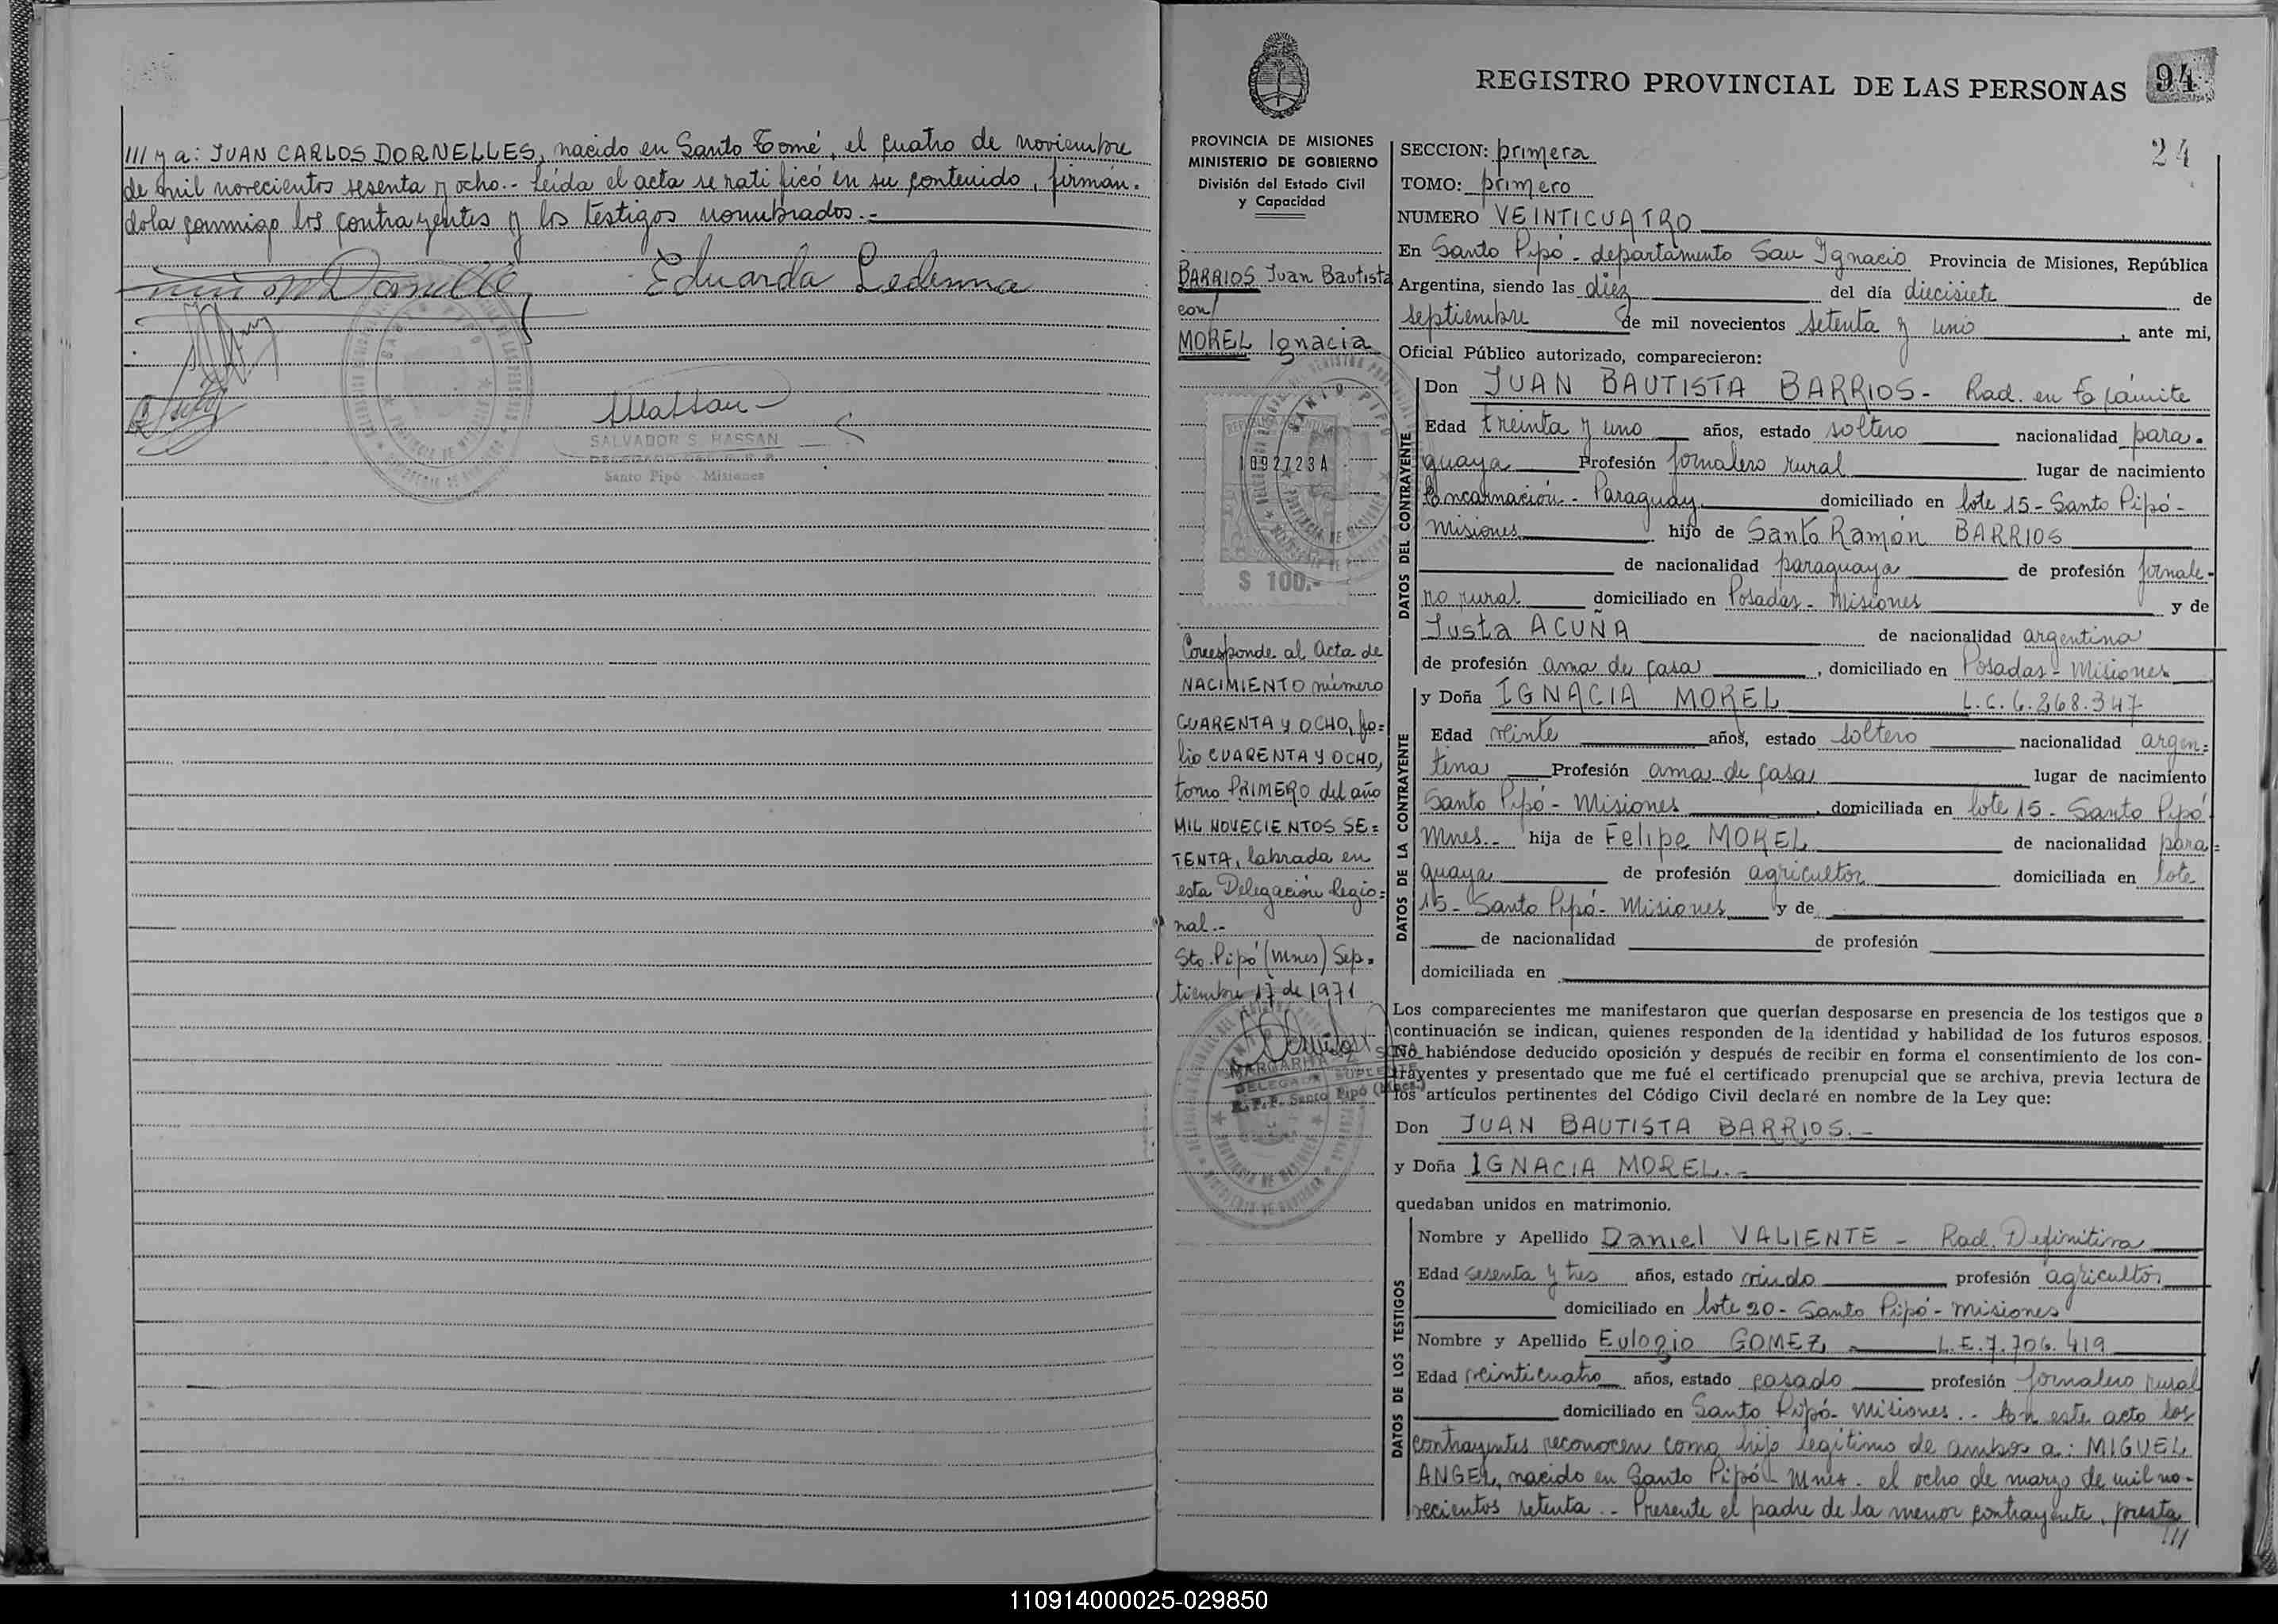 /// y a: JUAN CARLOS DORNELLES, nacido en Santo Tomé, el cuatro de noviembre
de mil novecientos sesenta y ocho.- Leída el acta se ratificó en su contenido, firmán-
dola conmigo los contrayentes y los testigos nombrados.-
Eduarda Ledesma
SALVADOR S. HASSAN
Santo Pipó Misiones
REGISTRO PROVINCIAL DE LAS PERSONAS
94
24
PROVINCIA DE MISIONES
MINISTERIO DE GOBIERNO
División del Estado Civil
y Capacidad
BARRIOS Juan Bautista
con/
MOREL Ignacia
1092723A
$ 100.-
Corresponde al Acta de
NACIMIENTO número
CUARENTA Y OCHO, fo=
lio CUARENTA Y OCHO,
tomo PRIMERO del año
MIL NOVECIENTOS SE=
TENTA, labrada en
esta Delegación Regio=
nal.-
Sto. Pipó (Mnes) Sep.
tiembre 17 de 1971
MARGARITA SOSA
DELEGADA SUPLENTE
R.P.P. Santo Pipó (Mnes.)
SECCION: primera
TOMO: primero
NUMERO VEINTICUATRO
En Santo Pipó - departamento San Ignacio Provincia de Misiones, República
Argentina, siendo las diez del día diecisiete de
septiembre de mil novecientos setenta y uno, ante mi,
Oficial Público autorizado, comparecieron:
DATOS DEL CONTRAYENTE
Don JUAN BAUTISTA BARRIOS- Rad. en trámite
Edad treinta y uno años, estado soltero nacionalidad para-
guaya Profesión jornalero rural lugar de nacimiento
Encarnación - Paraguay domiciliado en lote 15 - Santo Pipó -
Misiones hijo de Santo Ramón BARRIOS
de nacionalidad paraguaya de profesión jornale-
ro rural domiciliado en Posadas - Misiones y de
Justa ACUÑA de nacionalidad argentina
de profesión ama de casa, domiciliado en Posadas - Misiones
DATOS DE LA CONTRAYENTE
y Doña IGNACIA MOREL L.C. 6.268.347
Edad veinte años, estado soltero nacionalidad argen=
tina Profesión ama de casa lugar de nacimiento
Santo Pipó - Misiones, domiciliada en lote 15 - Santo Pipó
Mnes.- hija de Felipe MOREL de nacionalidad para=
guaya de profesión agricultor domiciliada en lote
15 - Santo Pipó - Misiones y de
de nacionalidad de profesión
domiciliada en
Los comparecientes me manifestaron que querían desposarse en presencia de los testigos que a
continuación se indican, quienes responden de la identidad y habilidad de los futuros esposos.
No habiéndose deducido oposición y después de recibir en forma el consentimiento de los con-
trayentes y presentado que me fué el certificado prenupcial que se archiva, previa lectura de
los artículos pertinentes del Código Civil declaré en nombre de la Ley que:
Don JUAN BAUTISTA BARRIOS.-
y Doña IGNACIA MOREL.-
quedaban unidos en matrimonio.
DATOS DE LOS TESTIGOS
Nombre y Apellido Daniel VALIENTE - Rad. Definitiva
Edad sesenta y tres años, estado viudo profesión agricultor
domiciliado en lote 20 - Santo Pipó - Misiones
Nombre y Apellido Eulogio GOMEZ L.E. 7.706.419
Edad veinticuatro años, estado casado profesión jornalero rural
domiciliado en Santo Pipó - Misiones.- En este acto los
contrayentes reconocen como hijo legítimo de ambos a: MIGUEL
ANGEL, nacido en Santo Pipó - Mnes - el ocho de marzo de mil no-
vecientos setenta.- Presente el padre de la menor contrayente, presta
///
110914000025-029850